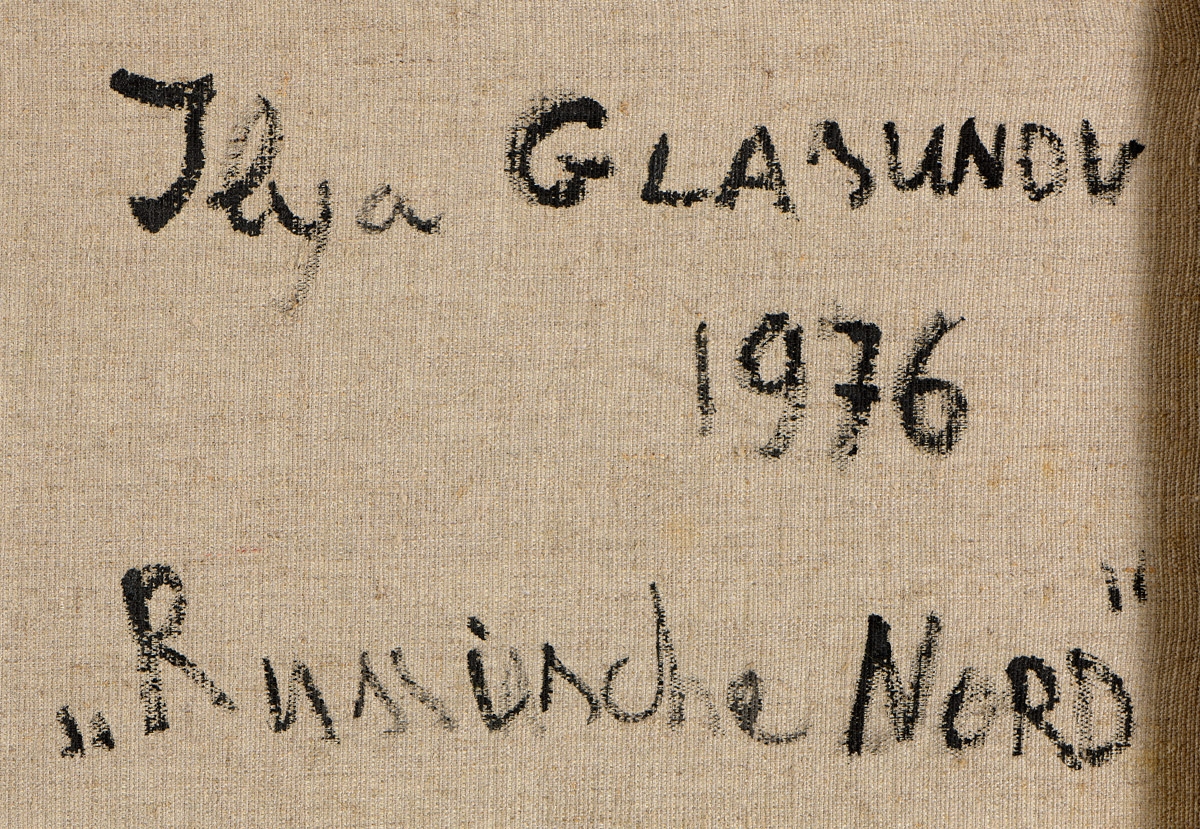 Ilya GLASUNOV
1976
„Russische NORD“